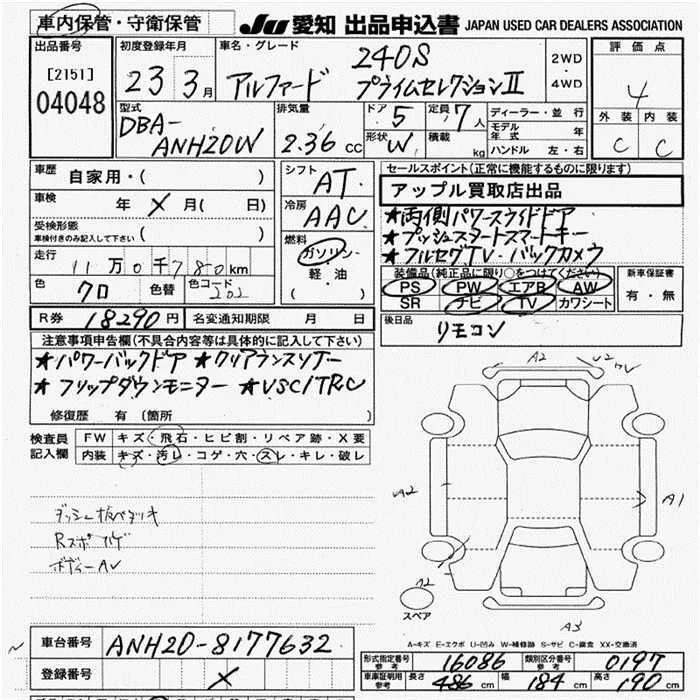 車内保管・守衛保管
JU 愛知 出品申込書 JAPAN USED CAR DEALERS ASSOCIATION
出品番号 [2151] 04048
初度登録年月 23年 3月
車名・グレード 240S
アルファード プライムセレクションⅡ
2WD・4WD
評価点 4
外装 内装
C C
型式 DBA-ANH20W
排気量 2.36 CC
ドア 5
形状 W
定員 7人
積載 kg
ディーラー・並行
モデル年式 年
ハンドル 左・右
車歴 自家用・( )
車検 年 X 月( 日)
受検形態
車検付きのみ記入して下さい ( )
走行 11万0千780km
色 クロ 色替 色コード 202
シフト AT
冷房 AAC
燃料 ガソリン・軽・油 ( )
セールスポイント(正常に機能するものに限り)
アップル買取店出品
★両側パワースライドドア
★プッシュスタートスマートキー
★フルセグTV・バックカメラ
装備品(純正品に限り○をつけてください)
PS PW エアB AW
SR ナビ TV カワシート
新車保証書 有・無
R券 18290円 名変通知期限 月 日
後日品 リモコン
注意事項申告欄(不具合内容等は具体的に記入して下さい)
★パワーバックドア ★クリアランスソナー
★フリップダウンモニター ★VSC/TRC
修復歴 有(箇所 )
検査員記入欄
FW キズ・飛石・ヒビ割・リペア跡・X要
内装 キズ・汚レ・コゲ・穴・スレ・キレ・破レ
A2
A2
A1
A2
スペア
A3
A-キズ E-エクボ U-凹み W-補修跡 S-サビ C-腐食 XX-交換済
車台番号 ANH20-8177632
登録番号 X
形式指定番号参考 16086 類別区分番号参考 0197
車庫証明用参考 長さ 486cm 幅 184cm 高さ 190cm